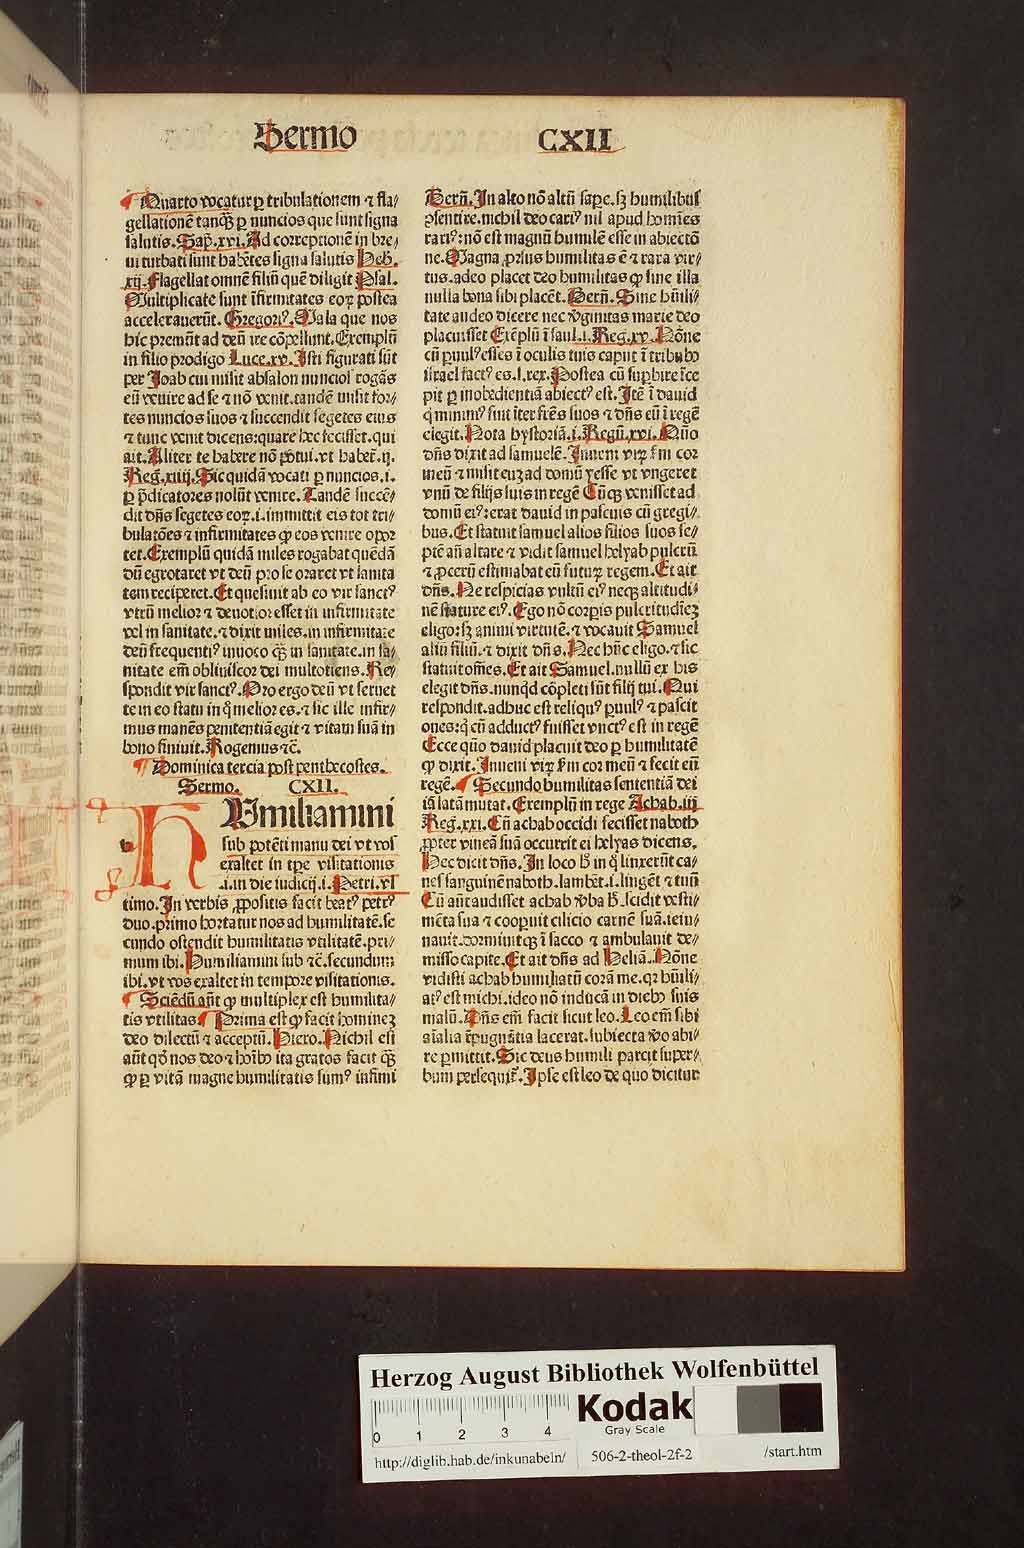 Sermo CXII
Quarto vocatur ꝑ tribulationem ⁊ fla/
gellationē tanꝗ̈ ꝑ nuncios que sunt signa
salutis. Sap̄. xvi. Ad correptionē in bre/
ui turbati sunt habētes signa salutis Heb̄.
xij. Flagellat omnē filiū quē diligit Psal.
Multiplicate sunt īfirmitates eoꝝ postea
accelerauerūt. Gregoriꝰ. Mala que nos
hic premūt ad deū ire cōpellunt. Exemplū
in filio prodigo Luce. xv. Isti figurati sūt
per Ioab cui misit absalon nuncios rogās
eū venire ad se ⁊ nō venit. tandē misit for/
tes nuncios suos ⁊ succendit segetes eius
⁊ tunc venit dicens: quare hec fecisset. qui
ait. Aliter te habere nō potui. vt habet̄. ij.
Reg̃. xiiij. Sic quidā vocati ꝑ nuncios. i.
ꝑ p̄dicatores nolūt venire. Tandē succē/
dit dn̄s segetes eoꝝ. i. immittit eis tot tri/
bulatōes ⁊ infirmitates ꝙ eos venire opor
tet. Exemplū quidā miles rogabat quēdā
dū egrotaret vt deū pro se oraret vt sanita
tem reciperet. Et quesiuit ab eo vir sanctꝰ
vtrū melior ⁊ deuotior esset in infirmitate
vel in sanitate. ⁊ dixit miles. in infirmitate
deū frequentiꝰ inuoco ꝗ̈ in sanitate. in sa/
nitate em̄ obliuiscor dei multotiens. Re/
spondit vir sanctꝰ. Pro ergo deū vt seruet
te in eo statu in q̄ melior es. ⁊ sic ille infir/
mus manēs penitentiā egit ⁊ vitam suā in
bono finiuit. Rogemus ⁊c̄.
Dominica tercia post penthecostes.
Sermo. CXII.
HVmiliamini
sub potēti manu dei vt vos
exaltet in tp̄e visitationis
.i. in die iudicij. i. Petri. vl
timo. In verbis ꝓpositis facit beatꝰ petrꝰ
duo. primo hortatur nos ad humilitatē. se
cundo ostendit humilitatis vtilitatē. pri/
mum ibi. Humiliamini sub ⁊c̄. secundum
ibi. vt vos exaltet in tempore visitationis.
Sciēdū aūt ꝙ multiplex est humilita/
tis vtilitas Prima est ꝙ facit hominez
deo dilectū ⁊ acceptū. Hicro. Nichil est
aūt qd̓ nos deo ⁊ hoīb̄ ita gratos facit ꝗ̈
ꝙ ꝑ vitā magne humilitatis sumꝰ infimi
Bern̄. In alto nō altū sape. sꝫ humilibus
ꝯsentire. nichil deo cariꝰ nil apud homīes
rariꝰ: nō est magnū humilē esse in abiectō
ne. Magna ꝓrsus humilitas ē ⁊ rara vir/
tus. adeo placet deo humilitas ꝙ sine illa
nulla bona sibi placēt. Bern̄. Sine hūili/
tate audeo dicere nec v̓ginitas marie deo
placuisset Exēplū ī saul. i. Reg̃. xv. Nōne
cū paruulꝰ esses ī oculis tuis caput ī tribubꝫ
israel factꝰ es. s. rex. Postea cū suꝑbire īce
pit ꝑ inobedientiā abiectꝰ est. Itē ī dauid
q̄ minimꝰ fuit īter fr̄es suos ⁊ dn̄s eū ī regē
elegit. Nota hystoriā. i. Regū. xvi. Quō
dn̄s dixit ad samuelē. Inueni viꝝ fm̄ cor
meū ⁊ misit euꝫ ad domū yesse vt vngeret
vnū de filijs suis in regē Cūꝗ̈ venisset ad
domū eiꝰ: erat dauid in pascuis cū gregi/
bus. Et statuit samuel alios filios suos se/
ptē an̄ altare ⁊ vidit samuel helyab pulcrū
⁊ ꝓcerū estimabat eū futuꝝ regem. Et ait
dn̄s. Ne respicias vultū eiꝰ neꝗ̈ altitudi/
nē stature eiꝰ. Ego nō corpis pulcritudīeꝫ
eligo: sꝫ animi virtutē. ⁊ vocauit Samuel
aliū filiū. ⁊ dixit dn̄s. Nec hūc eligo. ⁊ sic
statuit om̄es. Et ait Samuel. nullū ex his
elegit dn̄s. nunqd̓ cōpleti sūt filij tui. Qui
respondit. adhuc est reliquꝰ ꝑuulꝰ ⁊ pascit
oues: q̓ cū adductꝰ fuisset vnctꝰ est in regē
Ecce quō dauid placuit deo ꝑ humilitatē
ꝙ dixit. Inueni viꝝ fm̄ cor meū ⁊ fecit eū
regē. Secundo humilitas sententiā dei
iā latā mutat. Exemplū in rege Achab. iij
Reg̃. xxi. Cū achab occidi fecisset naboth
ꝓpter vineā suā occurrit ei helyas dicens.
Hec dicit dn̄s. In loco h̄ in q̄ linxerūt ca/
nes sanguinē naboth. lambēt. i. lingēt ⁊ tuū
Cū aūt audisset achab v̓ba h̄. scidit vesti/
mēta sua ⁊ cooꝑuit cilicio carnē suā. ieiu/
nauit. dormiuitꝗ̈ ī sacco ⁊ ambulauit de/
misso capite. Et ait dn̄s ad Heliā. Nōne
vidisti achab humiliatū corā me. qꝛ hūili/
atꝰ est michi. ideo nō inducā in diebꝫ suis
malū. Dn̄s em̄ facit sicut leo. Leo em̄ sibi
aīalia īpugnātia lacerat. subiecta v̓o abi/
re ꝑmittit. Sic deus humili parcit super/
bum persequit̄. Ipse est leo de quo dicitur
Herzog August Bibliothek Wolfenbüttel
0 1 2 3 4
Kodak
Gray Scale
http://diglib.hab.de/inkunabeln/ 506-2-theol-2f-2 /start.htm